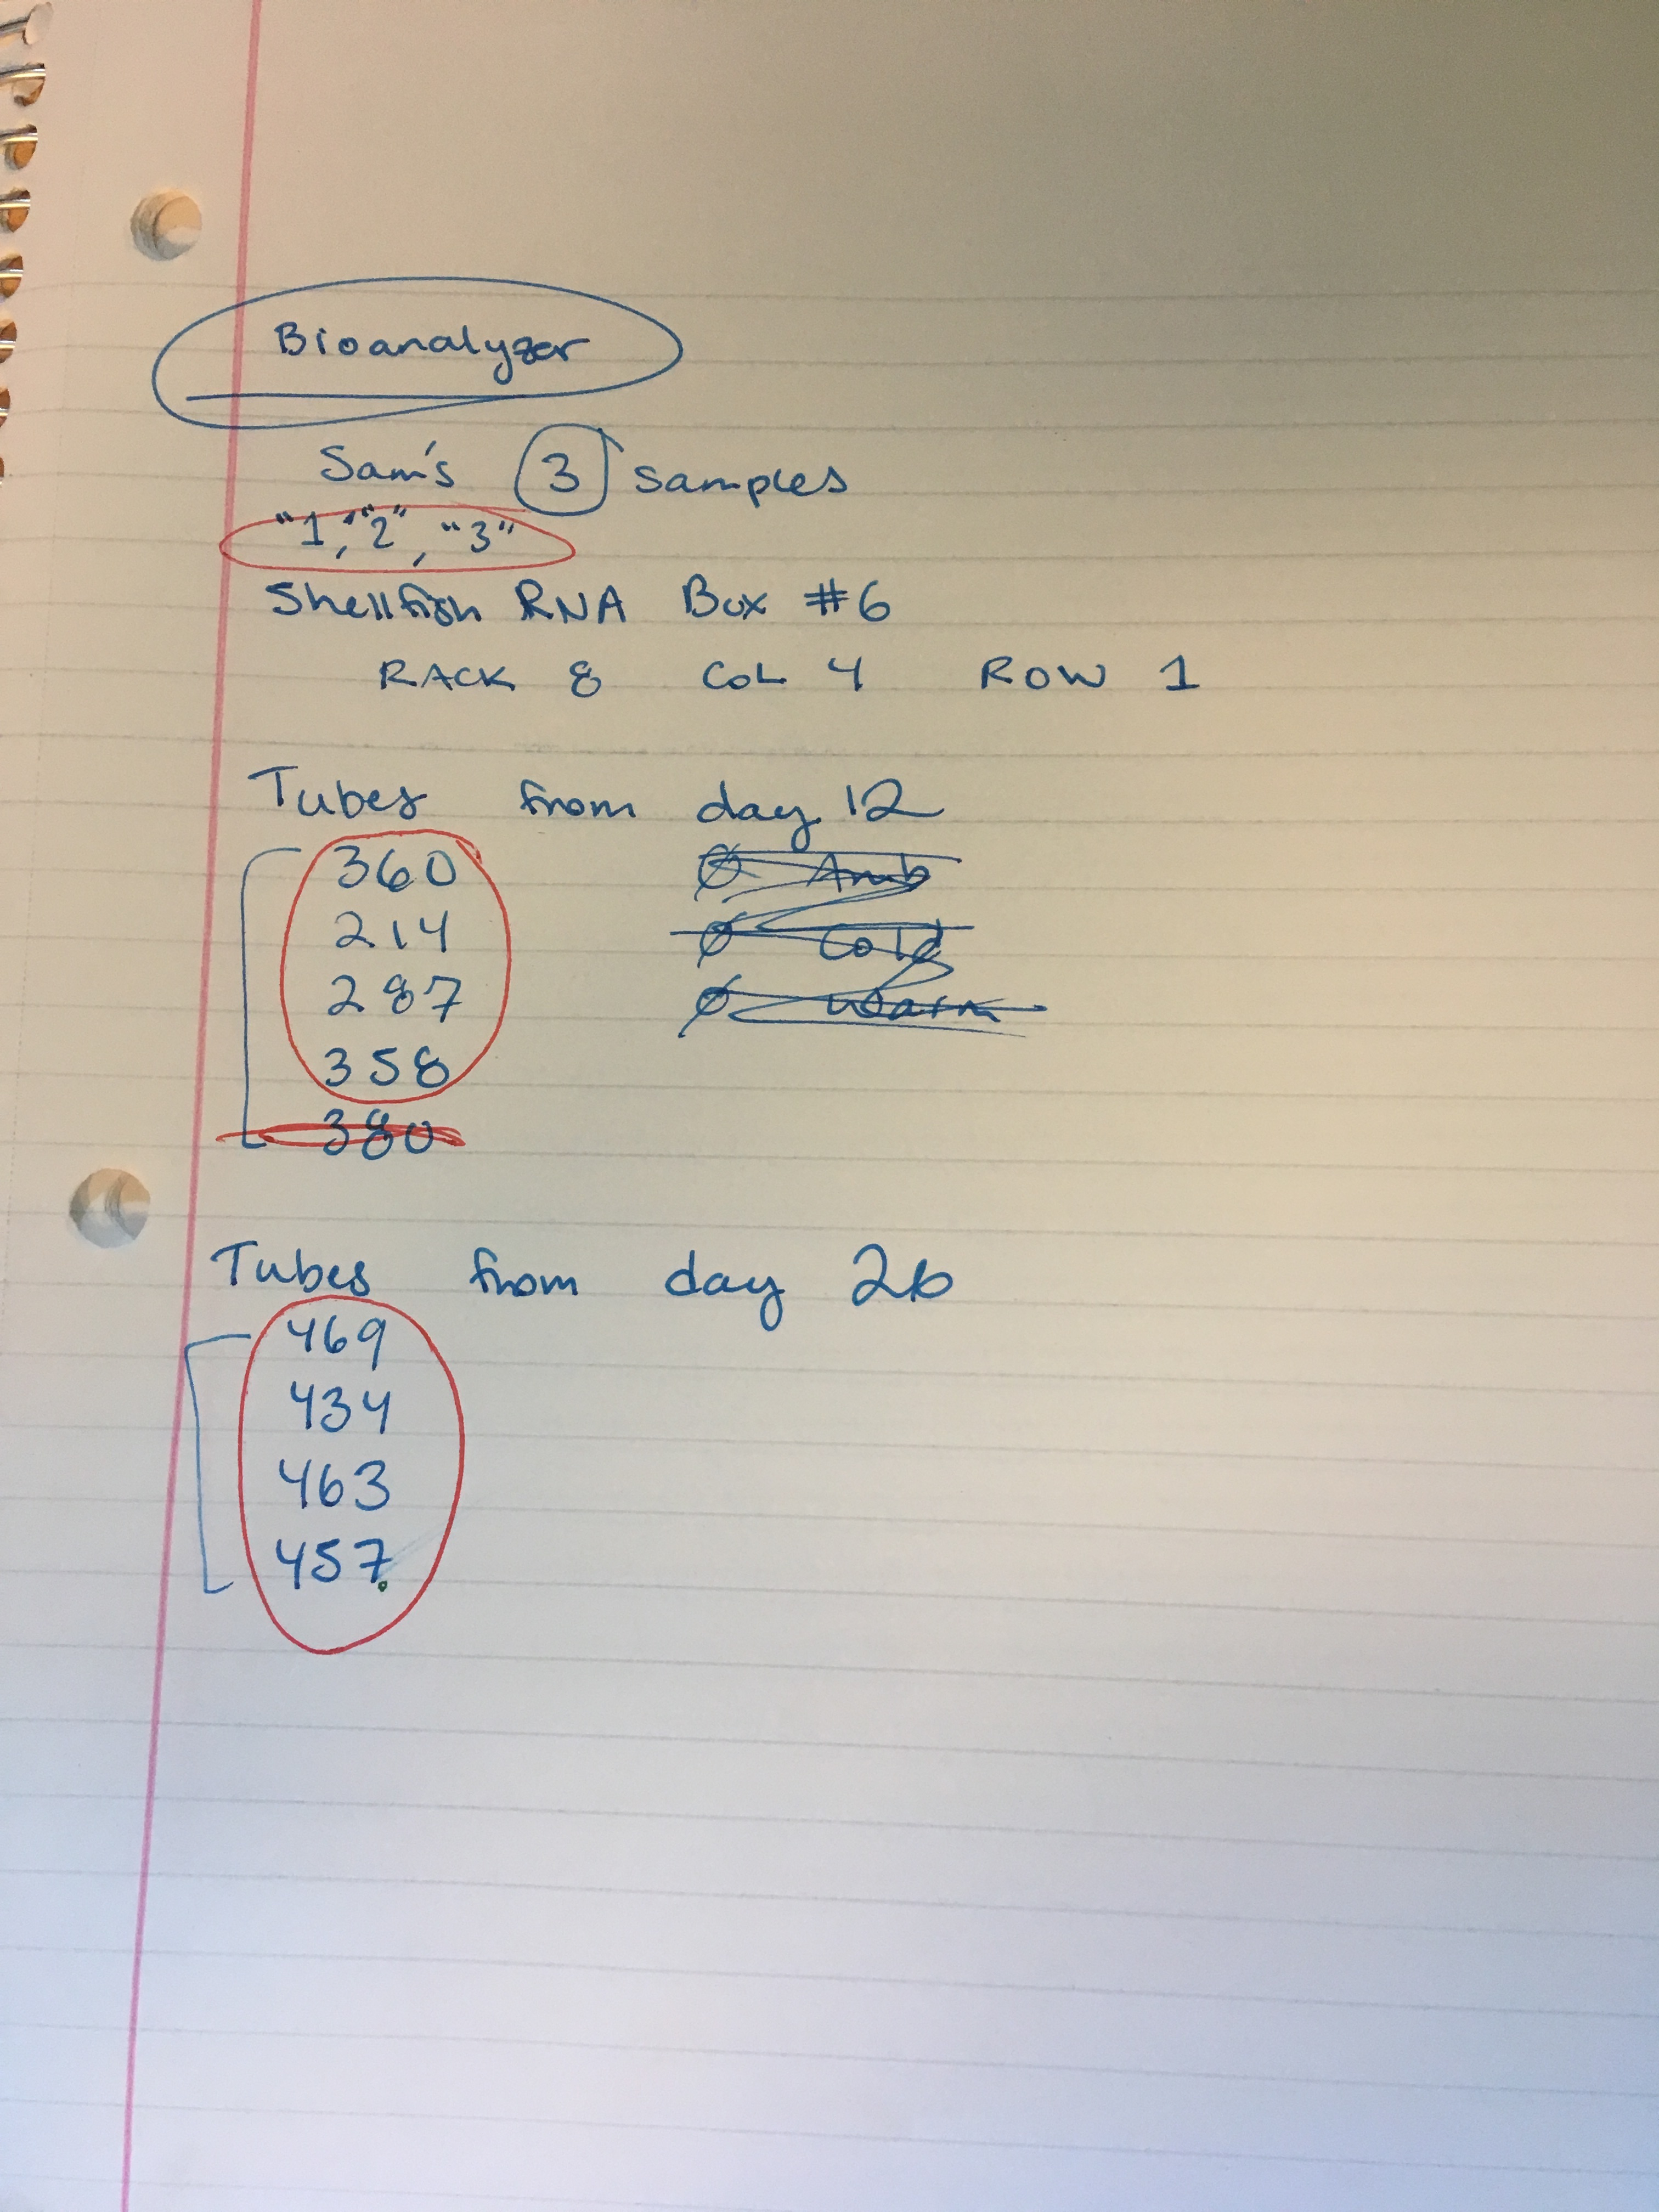 Bioanalyzer
Sam's 3 samples
"1," "2", "3"
Shellfish RNA Box #6
RACK 8 COL 4 ROW 1
Tubes from day 12
360 Ø Amb
214 Ø Cold
287 Ø Warm
358
380
Tubes from day 26
469
434
463
457